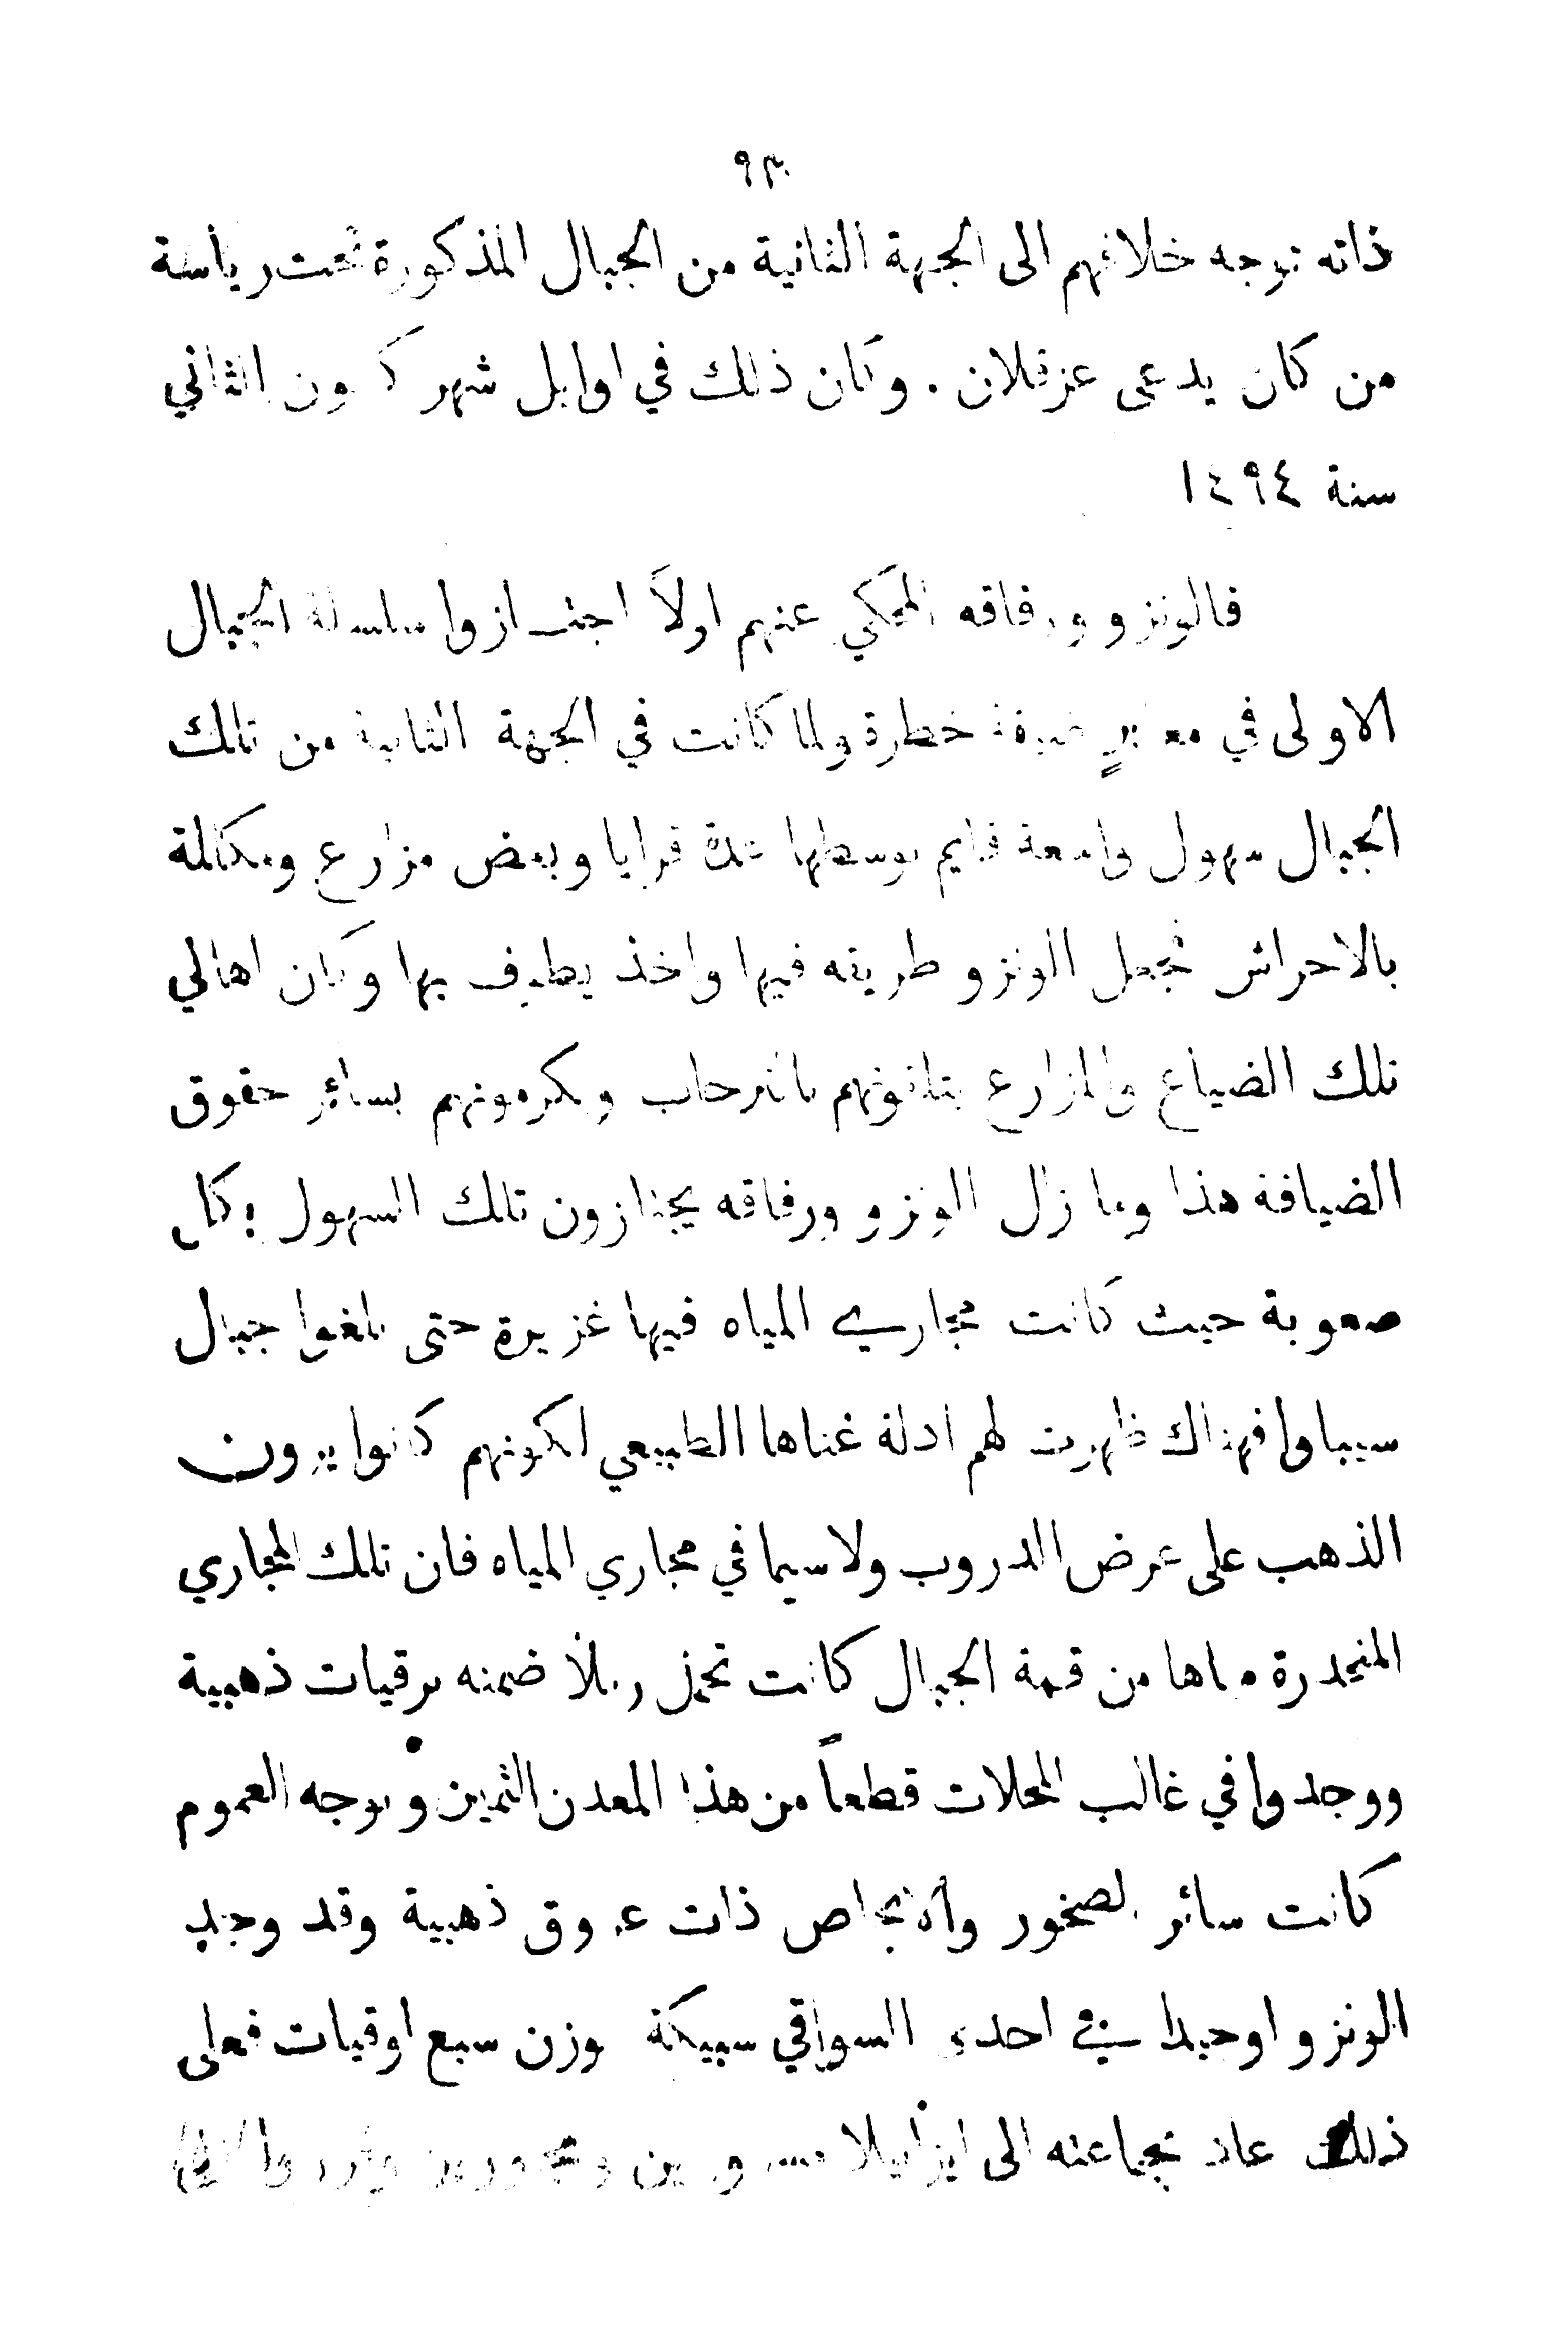 ٩٣
ذاته توجه خلافهم الى الجهة الثانية من الجبال المذكورة تحت رياسة
من كان يدعى عزقلان . وكان ذلك في اوايل شهر كانون الثاني
سنة ١٤٩٤
فالونزو ورفاقه المحكي عنهم اولاً اجتازوا سلسلة الجبال
الاولى في معابرٍ ضيقة خطارة ولما كانت في الجهة الثانية من تلك
الجبال سهول واسعة قايم بوسطها عدة قرايا وبعض مزارع ومكللة
بالاحراش فجعل الونزو طريقه فيها واخذ يطوف بها وكان اهالي
تلك الضياع والمزارع يتلقونهم بالترحاب ويكرمونهم بسائر حقوق
الضيافة هذا وما زال الونزو ورفاقه يجتازون تلك السهول بكل
صعوبة حيث كانت مجاري المياه فيها غزيرة حتى بلغوا جبال
سيباوا فهناك ظهرت لهم ادلة غناها الطبيعي لكونهم كانوا يرون
الذهب على عرض الدروب ولا سيما في مجاري المياه فان تلك المجاري
المنحدرة ماها من قمة الجبال كانت تحمل رملاً ضمنه برقيات ذهبية
ووجدوا في غالب المحلات قطعاً من هذا المعدن الثمين وبوجه العموم
كانت سائر الصخور والانجاص ذات عروق ذهبية وقد وجد
الونزو اوحيدا في احدى السواقي سبيكة بوزن سبع اوقيات فعلى
ذلك عاد بجماعته الى ايزابيلا مسرورين